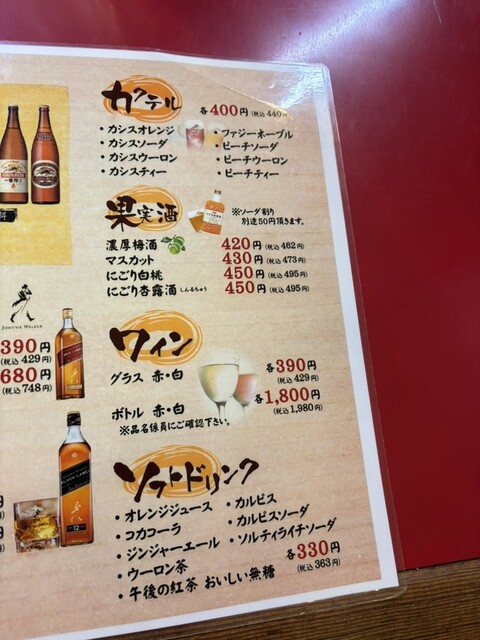 カクテル
各400円(税込440円)
・カシスオレンジ
・カシスソーダ
・カシスウーロン
・カシスティー
・ファジーネーブル
・ピーチソーダ
・ピーチウーロン
・ピーチティー
果実酒
※ソーダ割り
別途50円頂きます。
濃厚梅酒 420円(税込462円)
マスカット 430円(税込473円)
にごり白桃 450円(税込495円)
にごり杏露酒 しんるちゅう 450円(税込495円)
JOHNNIE WALKER
390円
(税込429円)
680円
(税込748円)
ワイン
グラス 赤・白 各390円
(税込429円)
ボトル 赤・白 各1,800円
(税込1,980円)
※品名係員にご確認下さい。
ソフトドリンク
・オレンジジュース
・コカコーラ
・ジンジャーエール
・ウーロン茶
・午後の紅茶 おいしい無糖
・カルピス
・カルピスソーダ
・ソルティライチソーダ
各330円
(税込363円)